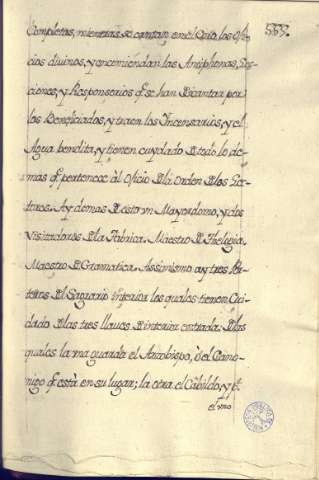 559.
Completas, mientras se cantan en él Coro los Ofi-
cios divinos, y encomiendan las Antiphonas, Lec-
ciones, y Responsorios q̃ se han D cantar por
los Beneficiados, y traen los Incensarios, y el
Agua bendita, y tienen cuydado D todo lo de-
mas q̃ pertenece àl Oficio D la Orden D los Lec-
tores. Ay demas D esto vn Mayordomo, y dos
Visitadores D la Fabrica. Maestro D Theologia,
Maestro D Gramatica. Assimismo ay tres
D el Sagrario los quales tienen Cui-
dado D las tres llaves D interior entrada. D las
quales la vna guarda el Arzobispo, ò el Cano-
nigo q̃ està en su lugar; la otra el Cabildo, y
el vno